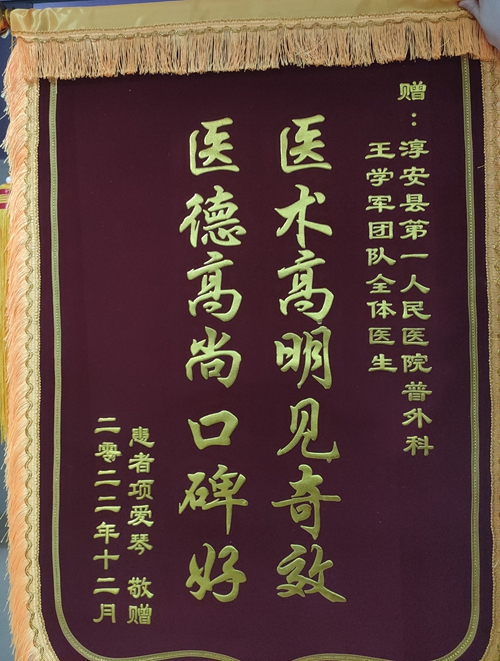 赠：淳安县第一人民医院普外科
王学军团队全体医生
医术高明见奇效
医德高尚口碑好
患者项爱琴 敬赠
二零二二年十二月